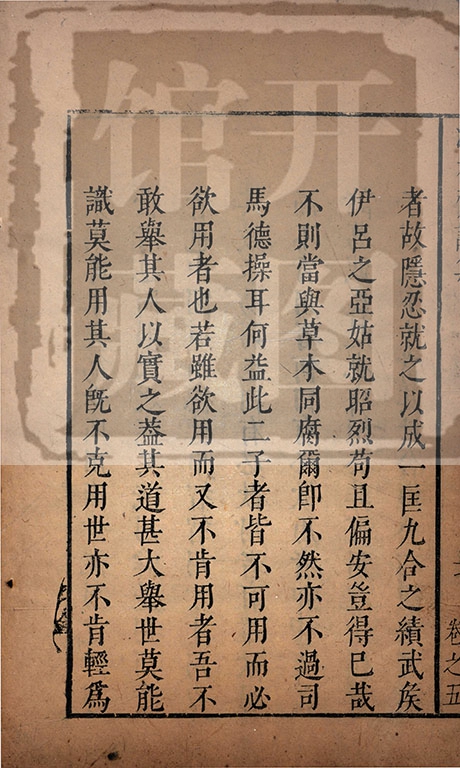 者故隱忍就之以成一匡九合之績武矦
伊呂之亞姑就昭烈苟且偏安豈得已哉
不則當與草木同腐爾卽不然亦不過司
馬德操耳何益此二子者皆不可用而必
欲用者也若雖欲用而又不肯用者吾不
敢舉其人以實之葢其道甚大舉世莫能
識莫能用其人旣不克用世亦不肯輕爲
卷之五
开图
馆藏